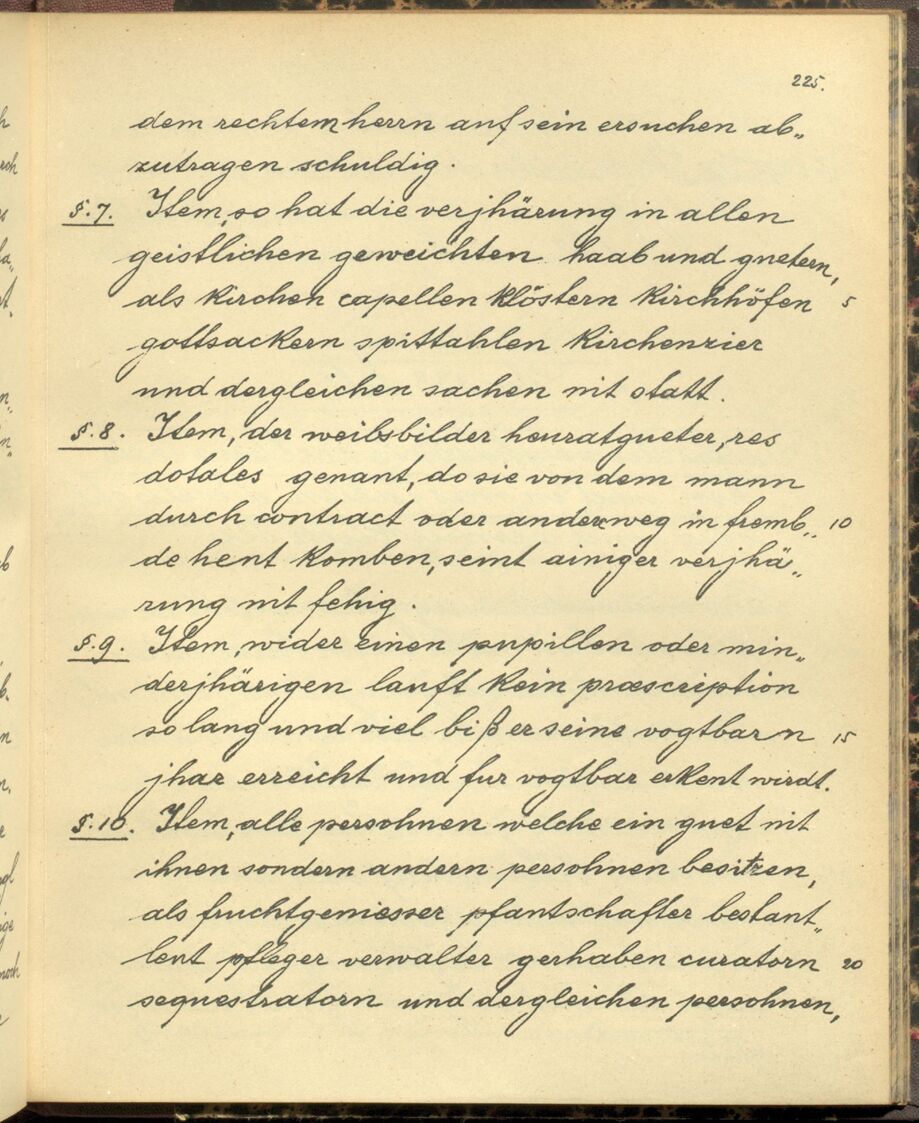 225.
dem rechtem herrn auf sein ersuchen ab„
zutragen schuldig.
§.7. Item, so hat die verjhärung in allen
geistlichen geweichten haab und guetern,
als kirchen capellen klöstern kirchhöfen 5
gottsackern spittahlen kirchenzier
und dergleichen sachen nit statt.
§.8. Item, der weibsbilder heuratgueter, res
dotales genant, do sie von dem mann
durch contract oder anderweg in fremb„ 10
de hent komben, seint ainiger verjhä„
rung nit fehig.
§.9. Item, wider einen pupillen oder min„
derjhärigen lauft kein præscription
so lang und viel biß er seine vogtbarn 15
jhar erreicht und fur vogtbar erkent wirdt.
§.10. Item, alle persohnen welche ein guet nit
ihnen sondern andern persohnen besitzen,
als fruchtgeniesser pfantschafter bestant„
leut pfleger verwalter gerhaben curatorn 20
sequestratorn und dergleichen persohnen,